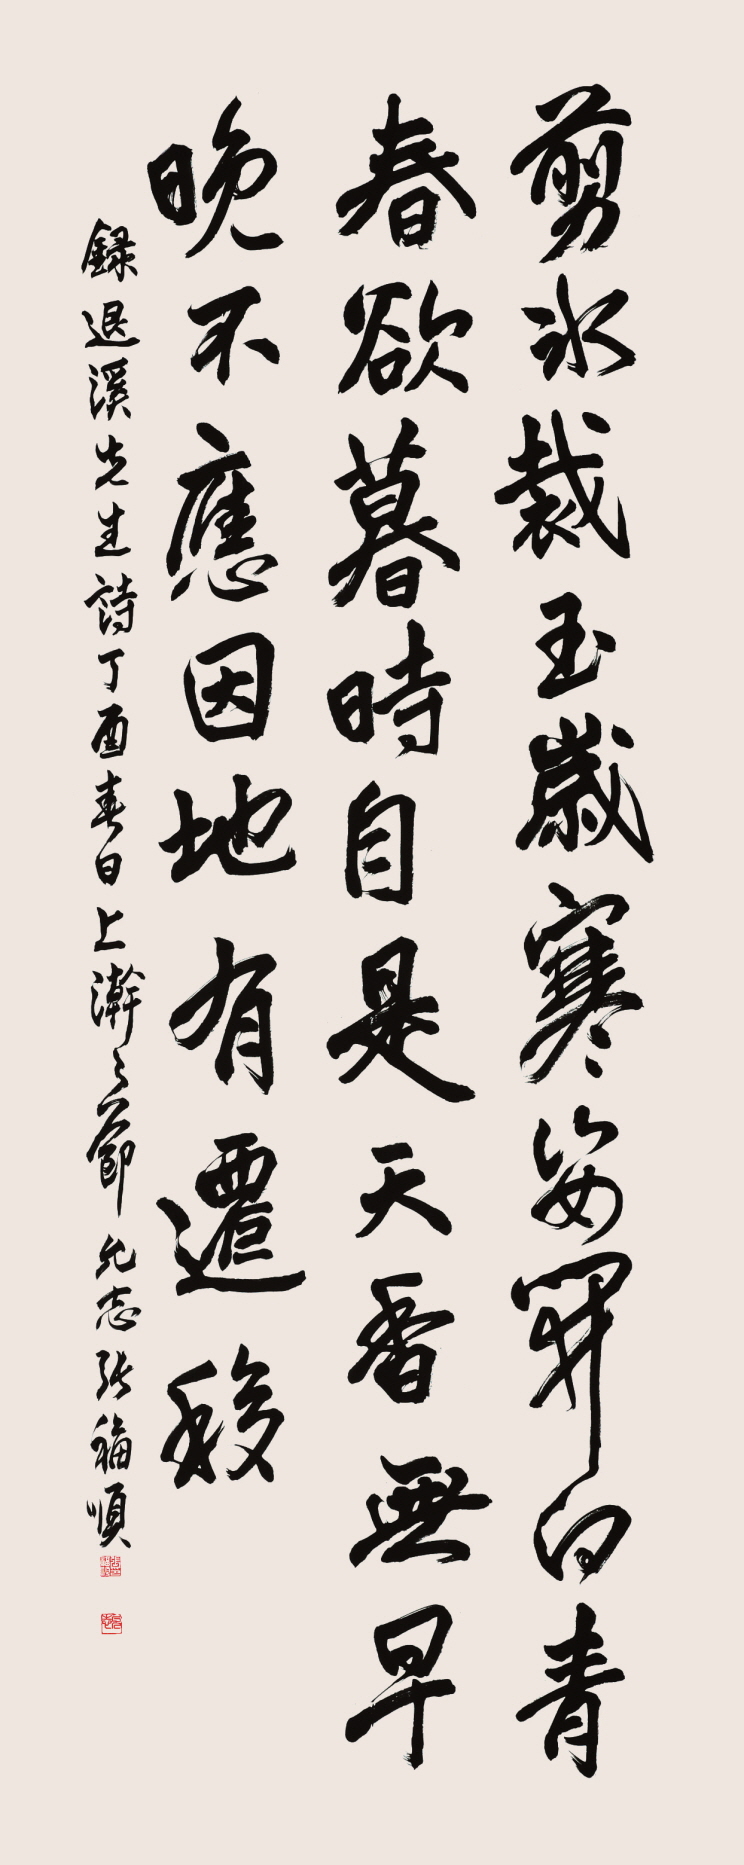 剪氷裁玉歲寒姿開向青
春欲暮時自是天香無早
晩不應因地有遷移
錄退溪先生詩丁酉春日上澣之節允志張福順